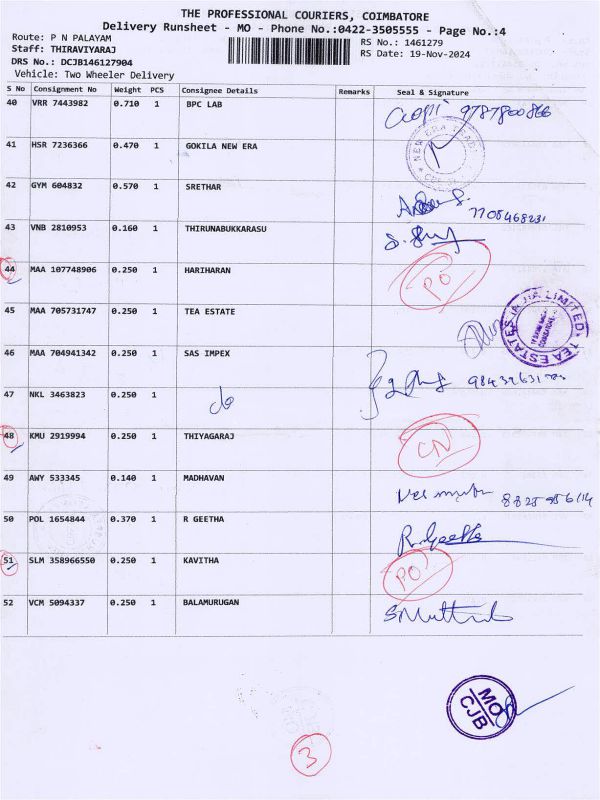 THE PROFESSIONAL COURIERS, COIMBATORE
Delivery Runsheet - MO - Phone No.:0422-3505555 - Page No.:4
Route: P N PALAYAM
Staff: THIRAVIYARAJ
DRS No.: DCJB146127904
Vehicle: Two Wheeler Delivery
RS No.: 1461279
RS Date: 19-Nov-2024
S No Consignment No Weight PCS Consignee Details Remarks Seal & Signature
40 VRR 7443982 0.710 1 BPC LAB 9787800866
41 HSR 7236366 0.470 1 GOKILA NEW ERA
NEW ERA
42 GYM 604832 0.570 1 SRETHAR
7708468231
43 VNB 2810953 0.160 1 THIRUNABUKKARASU
44 MAA 107748906 0.250 1 HARIHARAN PO
45 MAA 705731747 0.250 1 TEA ESTATE
TEA ESTATES INDIA LIMITED
46 MAA 704941342 0.250 1 SAS IMPEX
47 NKL 3463823 0.250 1 do
48 KMU 2919994 0.250 1 THIYAGARAJ CN
49 AWY 533345 0.140 1 MADHAVAN
50 POL 1654844 0.370 1 R GEETHA R. Geetha
51 SLM 358966550 0.250 1 KAVITHA PO
52 VCM 5094337 0.250 1 BALAMURUGAN
MO
CJB
3